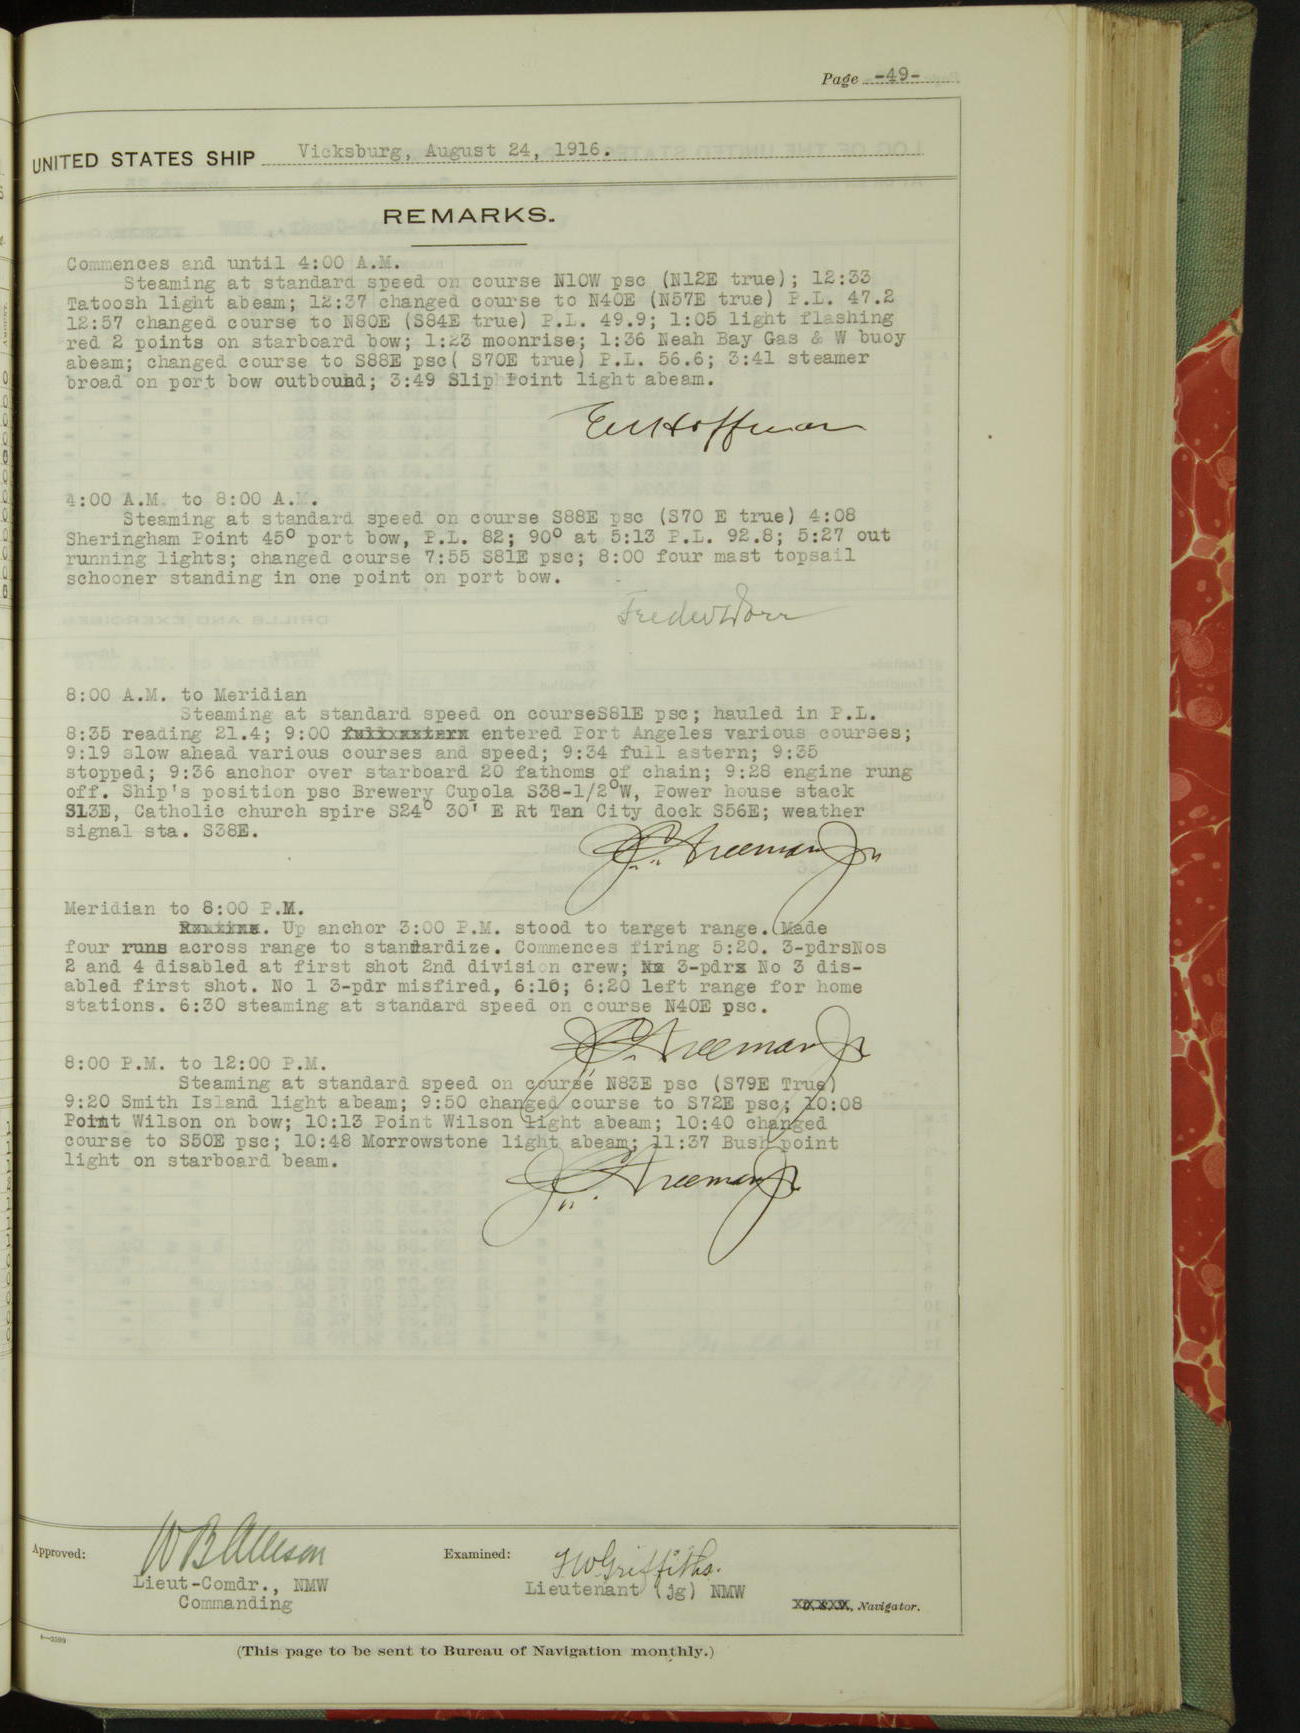 Page -49-
UNITED STATES SHIP Vicksburg, August 24, 1916.
REMARKS.
Commences and until 4:00 A.M.
Steaming at standard speed on course N10W psc (N12E true); 12:33
Tatoosh light abeam; 12:37 changed course to N40E (N57E true) P.L. 47.2
12:57 changed course to N80E (S84E true) P.L. 49.9; 1:05 light flashing
red 2 points on starboard bow; 1:23 moonrise; 1:36 Neah Bay Gas & W buoy
abeam; changed course to S88E psc( S70E true) P.L. 56.6; 3:41 steamer
broad on port bow outbound; 3:49 Slip Point light abeam.
Hoffman
4:00 A.M. to 8:00 A.M.
Steaming at standard speed on course S88E psc (S70 E true) 4:08
Sheringham Point 45° port bow, P.L. 82; 90° at 5:13 P.L. 92.8; 5:27 out
running lights; changed course 7:55 S81E psc; 8:00 four mast topsail
schooner standing in one point on port bow.
8:00 A.M. to Meridian
Steaming at standard speed on courseS81E psc; hauled in P.L.
8:35 reading 21.4; 9:00 entered Port Angeles various courses;
9:19 slow ahead various courses and speed; 9:34 full astern; 9:35
stopped; 9:36 anchor over starboard 20 fathoms of chain; 9:28 engine rung
off. Ship's position psc Brewery Cupola S38-1/2°W, Power house stack
S13E, Catholic church spire S24° 30' E Rt Tan City dock S56E; weather
signal sta. S38E.
Freeman Jr
Meridian to 8:00 P.M.
Up anchor 3:00 P.M. stood to target range. Made
four runs across range to standardize. Commences firing 5:20. 3-pdrsNos
2 and 4 disabled at first shot 2nd division crew; 3-pdr No 3 dis-
abled first shot. No 1 3-pdr misfired, 6:16; 6:20 left range for home
stations. 6:30 steaming at standard speed on course N40E psc.
Freeman Jr
8:00 P.M. to 12:00 P.M.
Steaming at standard speed on course N83E psc (S79E True)
9:20 Smith Island light abeam; 9:50 changed course to S72E psc; 10:08
Point Wilson on bow; 10:13 Point Wilson light abeam; 10:40 changed
course to S50E psc; 10:48 Morrowstone light abeam; 11:37 Bush point
light on starboard beam.
Freeman Jr
Approved: W B Allison Examined: F W Griffiths.
Lieut-Comdr., NMW Lieutenant (jg) NMW
Commanding Navigator.
(This page to be sent to Bureau of Navigation monthly.)